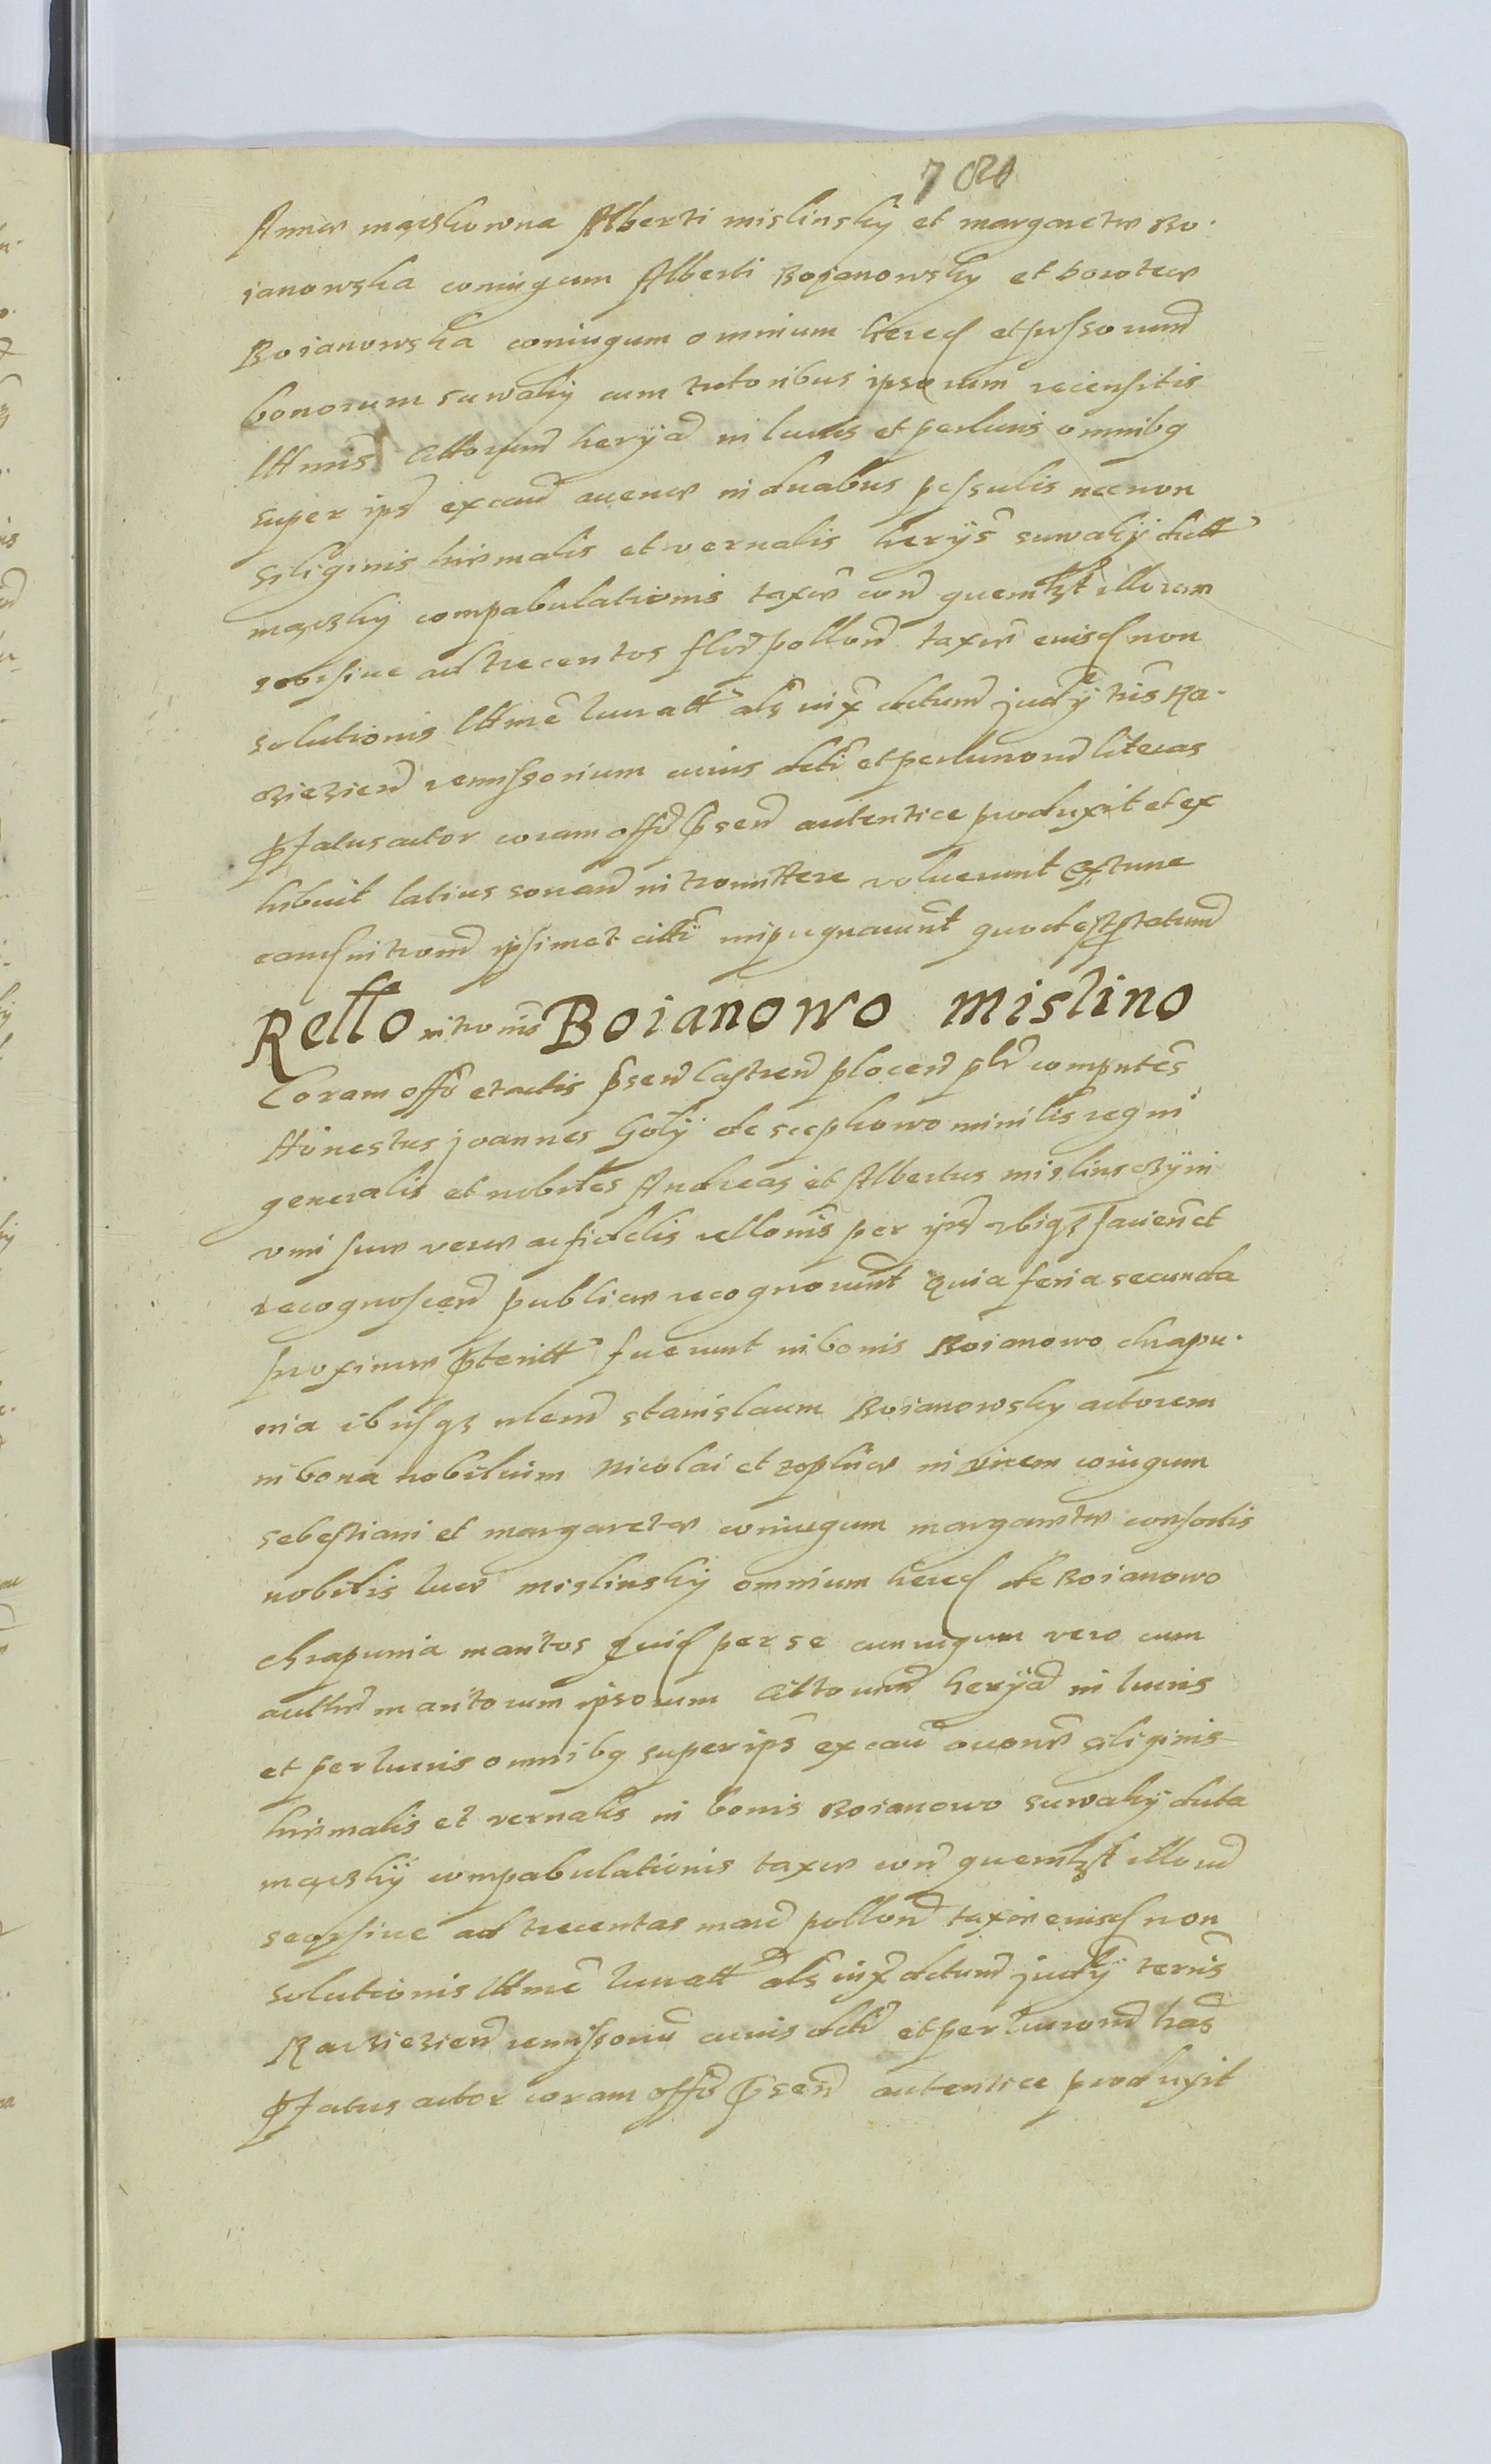 Annæ mączkowna Alberti mislinsky et margaretæ Bo.
ianowska coniugum Alberti Boianowsky et
Boianowska coniugum omnium hered et possorum
bonorum suwaky cum tutoribus ipsorum recensitis
Actorum in lucris et perlucris omnibg
super ips ex caus avenæ in duabus necnon
siliginis hiemalis et vernalis suwaky dictt
mączky compabulationis taxæ con quemlzt illorum
seorsiue ad trecentos flor pollon taxæ eiusd non
solutionis lucratt als iux dictum judy Ra.
remissorium cuius dcti et perlucrorum literas
pfatus actor coram offo psen autentice produxit et ex
hibuit latius sonan intromittere voluerunt extunc
eand introm ipsimet citti impugnarunt quod est ptatum
Rello introms Boianowo mislino
Coram offo et actis psen Castren plocen plr comptes
Honestus joannes Goly de scepkowo minilis regni
generalis et nobiles Andreas et Albertus mislinsczy in
vim suæ veræ ac fidelis rellonis per ips ibiqz facien et
recognoscen publicæ recognorunt quia feria secunda
proxima pteritt fuerunt in bonis Boianowo chrapu.
nia ibiqz stanislaum Boianowsky actorem
in bona nobilium Nicolai et zophiæ in vicem coniugum
sebestiani et margaretæ coniugum margaretæ consortis
nobilis lucæ mislinsky omnium hered de Boianowo
chrapunia maritos quid per se coniugum vero cum
autte maritorum ipsorum Actorum in lucris
et perlucris omnibg super ips ex caus avenæ siliginis
hiemalis et vernalis in bonis Boianowo suwaky dicta
mączky compabulationis taxæ con quemlzt illorum
seorsiue ad trecentas marc pollon taxæ eiusd non
solutionis lucratt als iux dictum judy terris
Racziezien remissorium cuius dcti et perlucrorum lras
pfatus actor coram offo psen autentice produxit